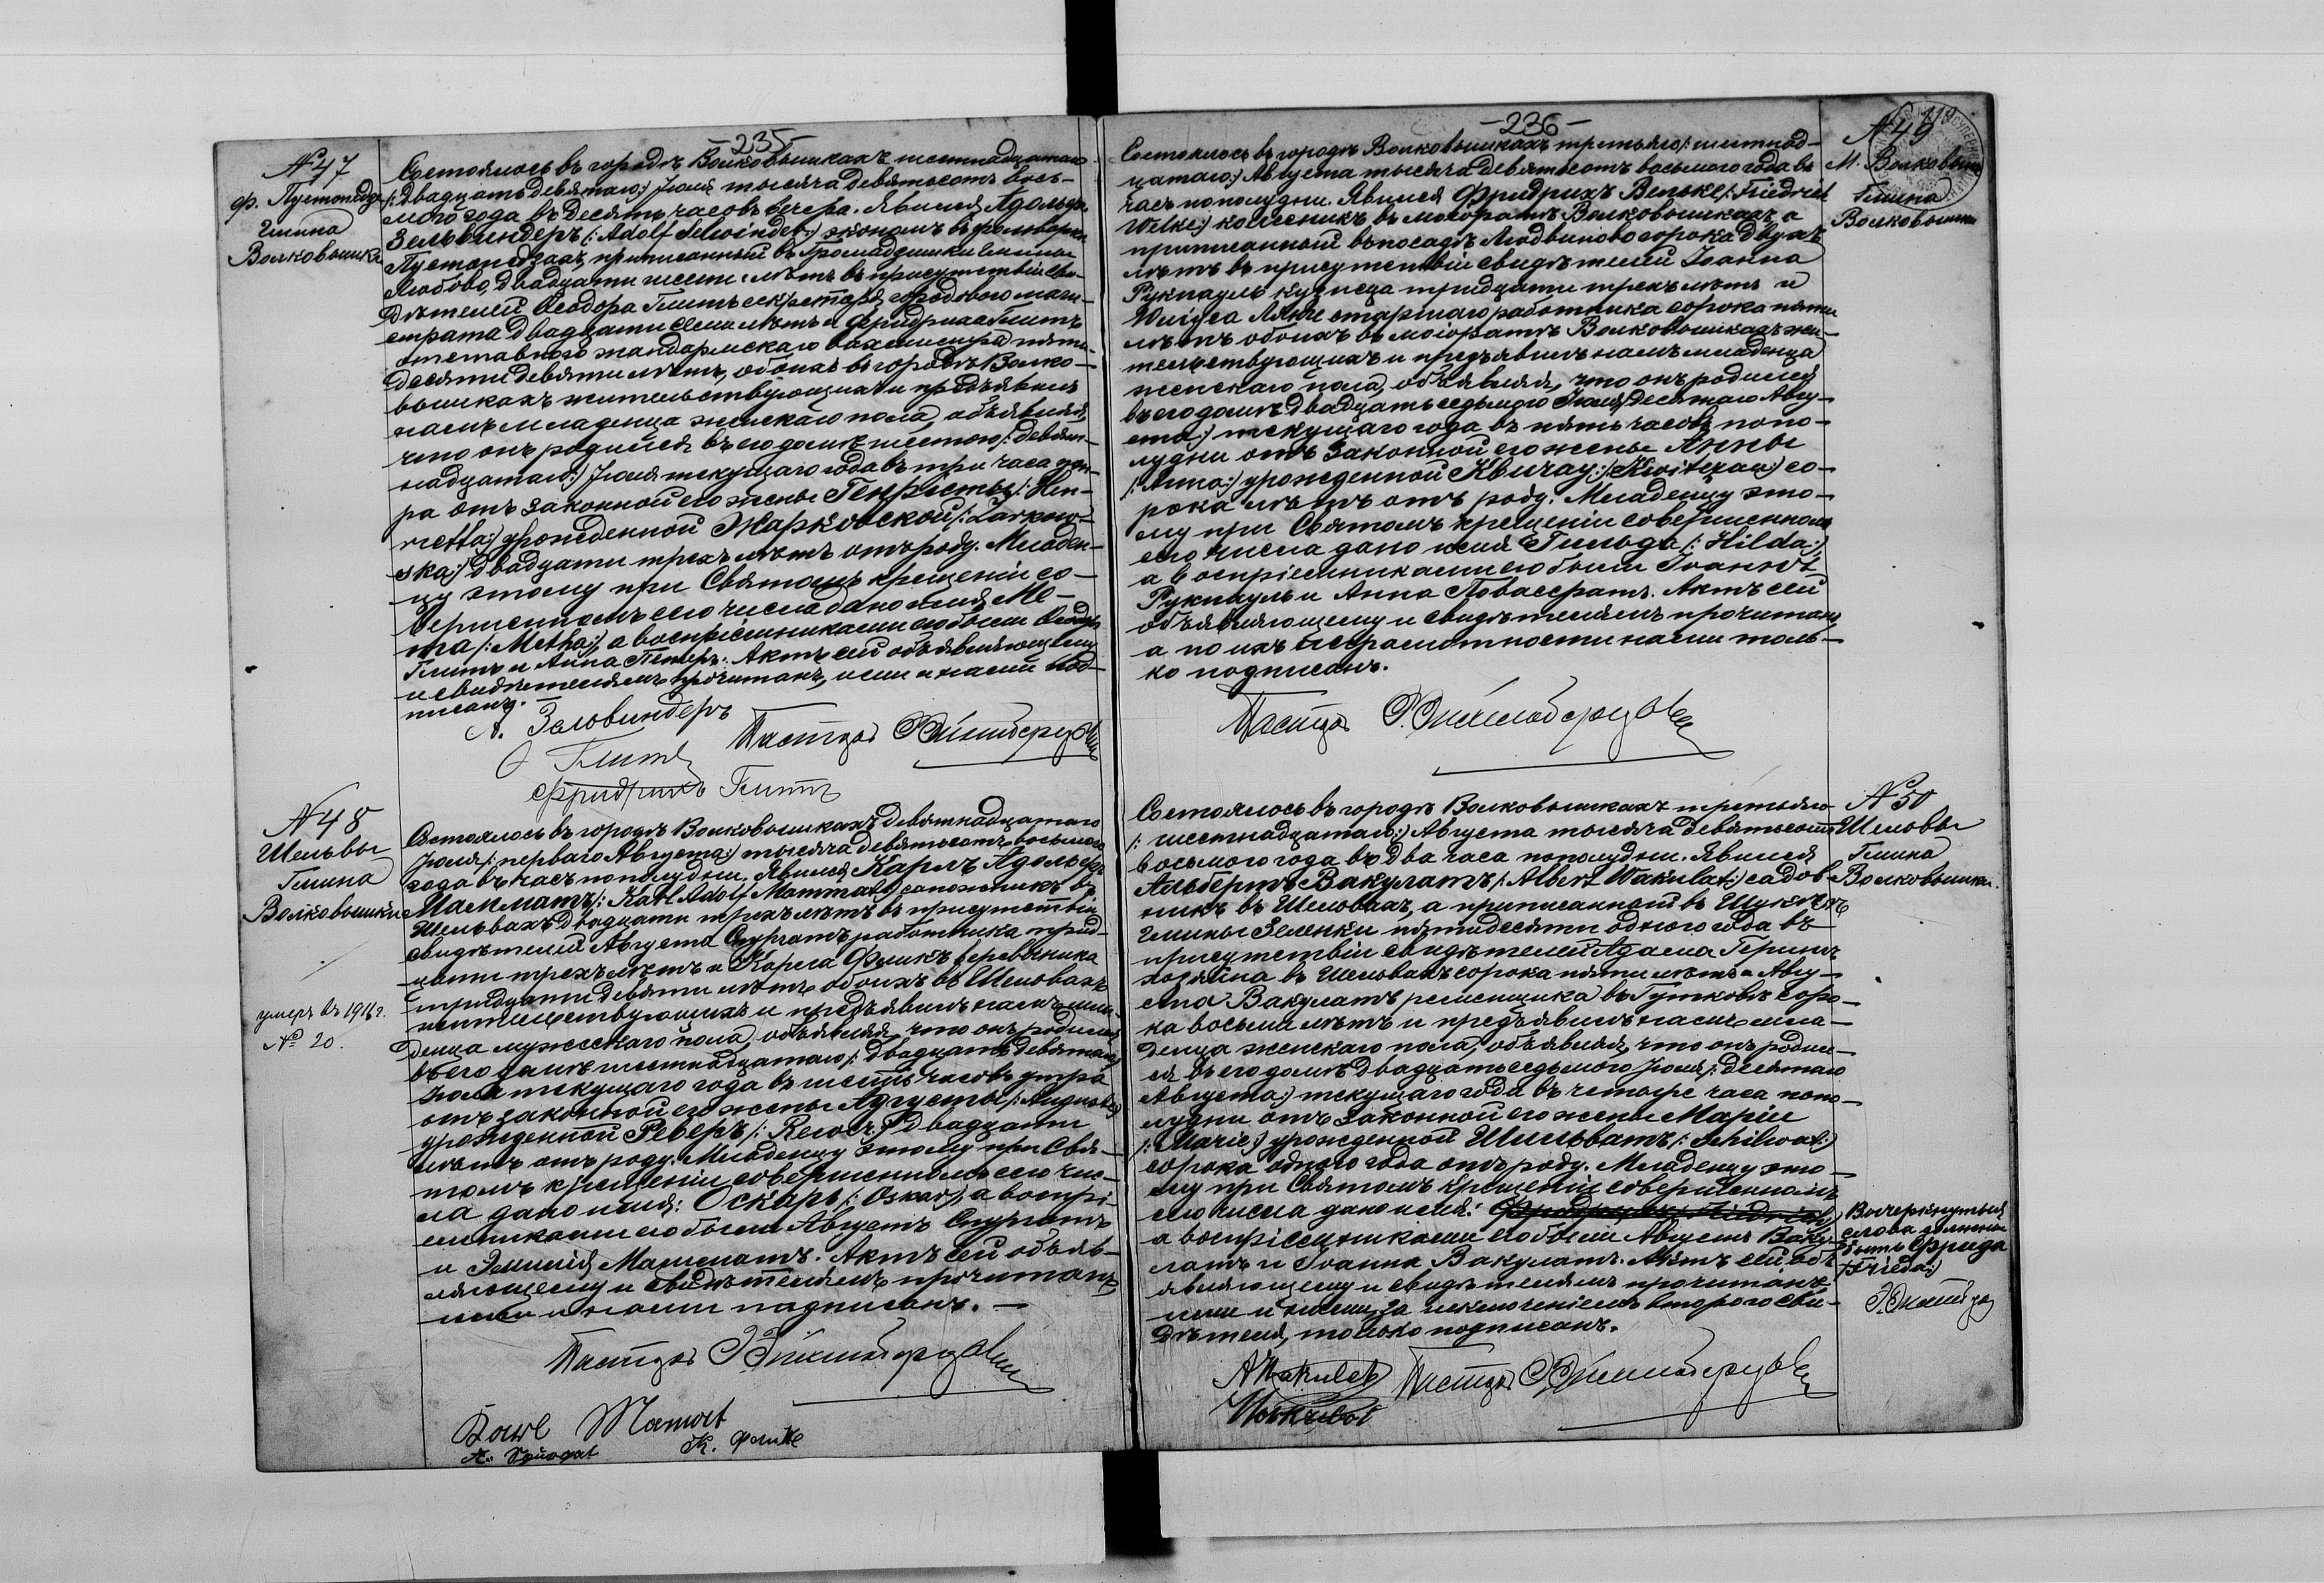 -235-
№ 47
ф. Пустопедзе
Гмина
Волковышки
Состоялось въ городѣ Волковышкахъ шестнадцатаго
/: двадцать девятаго:/ Іюля тысяча девятьсотъ вось-
мого года въ десять часовъ вечера. Явился Адольфъ
Зельвиндеръ /: Adolf Selwinder:/ экономъ въ фольварке
приписанный въ гмины
Любово, двадцати шести лѣтъ въ присутствіи сви-
дѣтелей Ѳеодора Глитъ секретаря городового маги-
страта двадцати семи лѣтъ и Фридриха Глитъ
отставного жандармскаго вахмистра пяти-
десяти девяти лѣтъ, обоихъ въ городѣ Волко-
вышкахъ жительствующихъ и предъявилъ
намъ младенца женскаго пола, объявляя,
что онъ родился въ его домѣ шестого /: девят-
надцатаго:/ Іюля текущаго года въ три часа
ра отъ законной его жены Генріетты /: Hen-
rietta:/ урожденной Жарковской /: Zarkow-
ska:/ двадцати трехъ лѣтъ отъ роду. Младен-
цу этому при Святомъ крещеніи со-
вершенномъ сего числа дано имя Ме-
та /: Metha:/, а воспріемниками его были Ѳеодоръ
Глитъ и Анна. Актъ сей объявляющему
и свидѣтелямъ прочитанъ, ими и нами под-
писанъ.
А. Зельвиндеръ
Глитъ Пасторъ
Фридрихъ Глитъ
№ 48
Шельвы
Гмина
Волковышки
умеръ въ 1916 г.
№ 20.
Состоялось въ городѣ Волковышкахъ девятнадцатаго
Іюля /: перваго Августа:/ тысяча девятьсотъ восьмого
года въ часъ пополудни. Явился Карлъ Адольфъ
Мамматъ /: Karl Adolf Mammat:/ сапожникъ въ
Шельвахъ двадцати трехъ лѣтъ въ присутствіи
свидѣтелей Августа Спургатъ работника трид-
цати трехъ лѣтъ и Карла Финкъ веревчника
тридцати девяти лѣтъ обоихъ въ Шельвахъ
жительствующихъ и предъявилъ намъ мла-
денца мужескаго пола, объявляя, что онъ родился
въ его домѣ шестнадцатаго /: двадцать девятаго:/
Іюля текущаго года въ шесть часовъ утра
отъ законной его жены Августы /: Auguste:/
урожденной Реверъ /: Rewer:/ двадцати
лѣтъ отъ роду. Младенцу этому при Свя-
томъ крещеніи совершенномъ сего чис-
ла дано имя: Оскаръ /: Oskar:/, а воспрі-
емниками его были Августъ Спургатъ
и Эмилія Мамматъ. Актъ сей объяв-
ляющему и свидѣтелямъ прочитанъ
ими и нами подписанъ. —
Пасторъ
Karl Mamat
A. Spurgat K. Финке
-236-
№ 49
М. Волковыш
Гмина
Волковышки
Состоялось въ городѣ Волковышкахъ третьяго /: шестнад-
цатаго:/ Августа тысяча девятьсотъ восьмого года въ
часъ пополудни. Явился Фридрихъ Вельке /: Friedrich
Welke:/ колесникъ въ маіоратѣ Волковышкахъ, а
приписанный въ посадѣ Людвиново сорока двухъ
лѣтъ въ присутствіи свидѣтелей Іоанна
Рукпауль кузнеца тридцати трехъ лѣтъ и
старшаго работника сорока пяти
лѣтъ обоихъ въ маіоратѣ Волковышкахъ жи-
тельствующихъ и предъявилъ намъ младенца
женскаго пола, объявляя, что онъ родился
въ его домѣ двадцать седьмого Іюля /: десятаго Авгу-
ста:/ текущаго года въ пять часовъ попо-
лудни отъ законной его жены Анны
/: Anna:/ урожденной Квичау /: Kwitschau:/ со-
рока лѣтъ отъ роду. Младенцу это-
му при Святомъ крещеніи совершенномъ
сего числа дано имя Гильда /: Hilda:/,
а воспріемниками его были Іоаннъ
Рукпауль и Анна. Актъ сей
объявляющему и свидѣтелямъ прочитанъ,
а по ихъ безграмотности нами толь-
ко подписанъ.
Пасторъ
№ 50
Шельвы
Гмина
Волковышки.
Состоялось въ городѣ Волковышкахъ третьяго
/: шестнадцатаго:/ Августа тысяча девятьсотъ
восьмого года въ два часа пополудни. Явился
Альбертъ Вакулатъ /: Albert Wakulat:/ садов-
никъ въ Шельвахъ, а приписанный въ
гмины Зеленки пятидесяти одного года въ
присутствіи свидѣтелей Адама Геринъ
хозяина въ Шельвахъ сорока пяти лѣтъ и Авгу-
ста Вакулатъ ремесника въ Гутковѣ соро-
ка восьми лѣтъ и предъявилъ намъ мла-
денца женскаго пола, объявляя, что онъ родил-
ся въ его домѣ двадцать седьмого Іюля /: десятаго
Августа:/ текущаго года въ четыре часа попо-
лудни отъ законной его жены Маріи
/: Marie:/ урожденной Шильватъ /: Schilwat:/
сорока одного года отъ роду. Младенцу это-
му при Святомъ крещеніи совершенномъ
сего числа дано имя: Фридрихъ /: Friedrich:/
а воспріемниками его были Августъ Ваку-
латъ и Іоанна Вакулатъ. Актъ сей объ-
являющему и свидѣтелямъ прочитанъ
ими и нами, за исключеніемъ второго сви-
дѣтеля, только подписанъ.
Вычеркнутыя
слова должны
быть Фрида
/: Frieda:/
A Wakulat Пасторъ